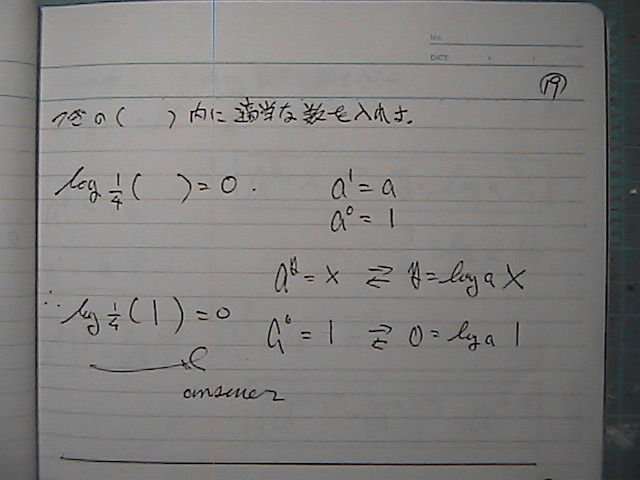 No.
DATE
⑲
次の( )内に適当な数を入れよ。
log 1/4 ( ) = 0.
a¹ = a
a⁰ = 1
a^y = x ⇄ y = log a x
∴ log 1/4 ( 1 ) = 0
a⁰ = 1 ⇄ 0 = log a 1
answer